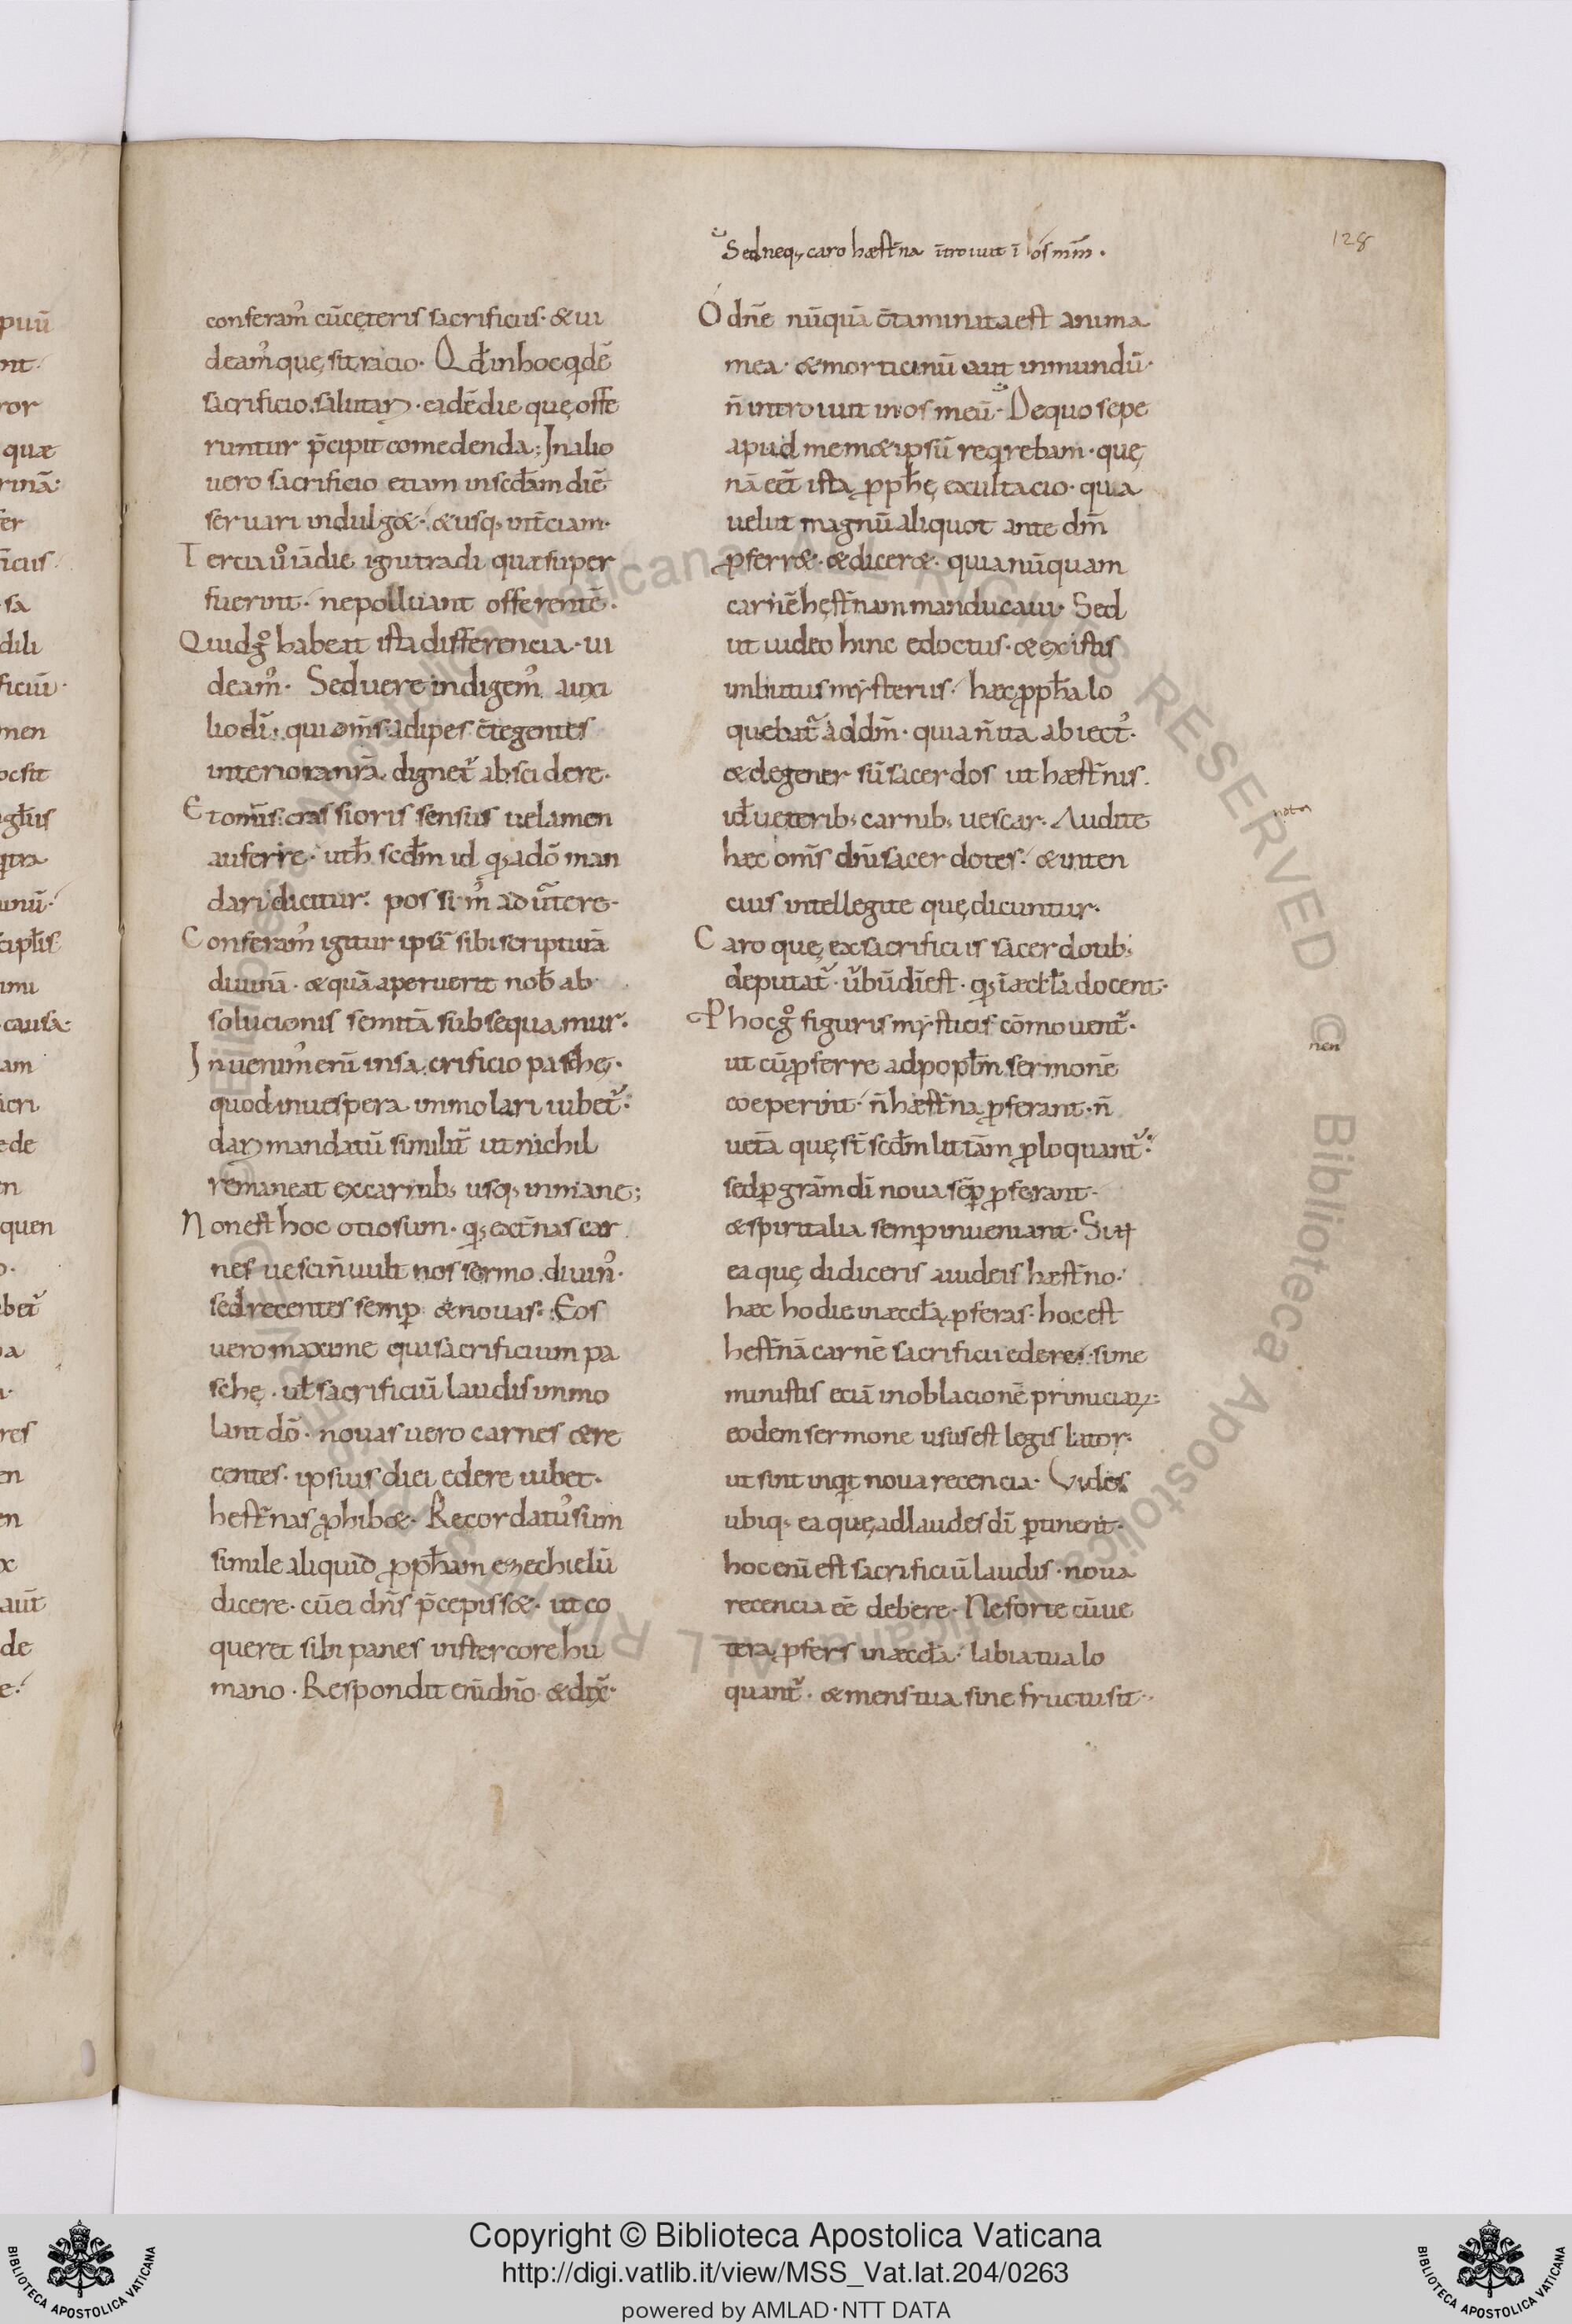 128
Sed neq; caro hæst̄na ītroiuit ī os mm̄.
conferam᾽ cū cęteris sacrificiis· & ui
deam᾽ que sit racio· Qd̄ in hoc qidē
sacrificio salutarꝫ· eadē die quę offe
runtur p̄cipit comedenda; In alio
uero sacrificio etiam in scd̄am diē
seruari indulg&· & usq; in t̄ciam·
Tercia u᾽o iā die igni tradi quæ super
fuerint· ne polluant offerentē·
Quid g᾽o habeat ista differencia· ui
deam᾽· Sed uere indigem᾽ auxi
lio dī· qui om̄s adipes c̄tegentes
interiora nr̄a dignet᾽ abscidere·
Et om̄is crassioris sensus uelamen
auferre· ut h̄ scdm̄ id qḍ a dō man
dari dicitur· possim᾽ aduert̄ere·
Conferam᾽ igitur ipsā sibi scripturā
diuinā· & quā aperuerit nob̄ ab
solucionis semitā subsequamur·
Inuenim᾽ enī in sacrificio paschę·
quod in uespera immolari iubet᾽·
darꝫ mandatū similit᾽ ut nichil
remaneat ex carnib; usq; in mane;
Non est hoc otiosum· qḍ ext̄nas car
nes uesci n̄ uult nos sermo diuin᾽·
sed recentes semp̱ & nouas· Eos
uero maxime qui sacrificium pa
schę· ul̄ sacrificiū laudis immo
lant dō· nouas uero carnes & re
centes· ipsius diei edere iubet·
hest̄nas ꝓhib&· Recordat᾽ sum
simile aliquid ꝓph̄am ezechielū
dicere· cū ei dn̄s p̄cepiss&· ut co
queret sibi panes in stercore hu
mano· Respondit enī dn̄o & dix̄·
O dn̄e nūquā c̄taminata est anima
mea· & morticinū aut inmundū·
n̄ introiuit in os meū· De quo sepe
apud mem&ipsū reqirebam· quę
nā eēt ista ꝓph̄ę exultacio· qua
uelut magnū aliquot ante dm̄
ꝓferr&· & dicer&· quia nūquam
carnē hęst̄nam manducaui· Sed
ut uideo hinc edoctus· & ex istis
imbutus mẏsteriis· hæc ꝓph̄a lo
quebat᾽ ad dm̄· quia n̄ ita abiect᾽·
& degener sū sacerdos ut hæst̄nis
ul̄ ueterib; carnib; uescar· Audite
hæc om̄s dn̄i sacerdotes· & inten
cius intellegite quę dicuntur·
Caro quę ex sacrificiis sacerdotib;
deputat᾽· u᾽bū dī est· qḍ ī æccl̄a docent·
P hoc g᾽o figuris mẏsticis cōmouent᾽·
ut cū ꝓferre ad popl̄m sermonē
coeperint· n̄ hæst̄na ꝓferant· n̄
uet̄a quę st̄ scdm̄ littām ꝓloquant᾽·
sed p̱ grām dī noua sēp̱ ꝓferant·
& spiritalia semp̱ inueniant· Si n̄
ea quę didiceris a iudeis hæst̄no·
hæc hodie in æccl̄a ꝓferas· hoc est
hest̄nā carnē sacrificii edere· si me
ministis eciā in oblacionē primiciaꝝ·
eodem sermone usus est legislator·
ut sint inqit noua recencia· Vides
ubiq; ea quę ad laudes dī p̱tinent·
hoc enī est sacrificiū laudis· noua
recencia eē debere· Ne forte cū ue
tera ꝓfers in æccl̄a· labia tua lo
quant᾽· & mens tua sine fructu sit·
Copyright © Biblioteca Apostolica Vaticana
http://digi.vatlib.it/view/MSS_Vat.lat.204/0263
powered by AMLAD·NTT DATA